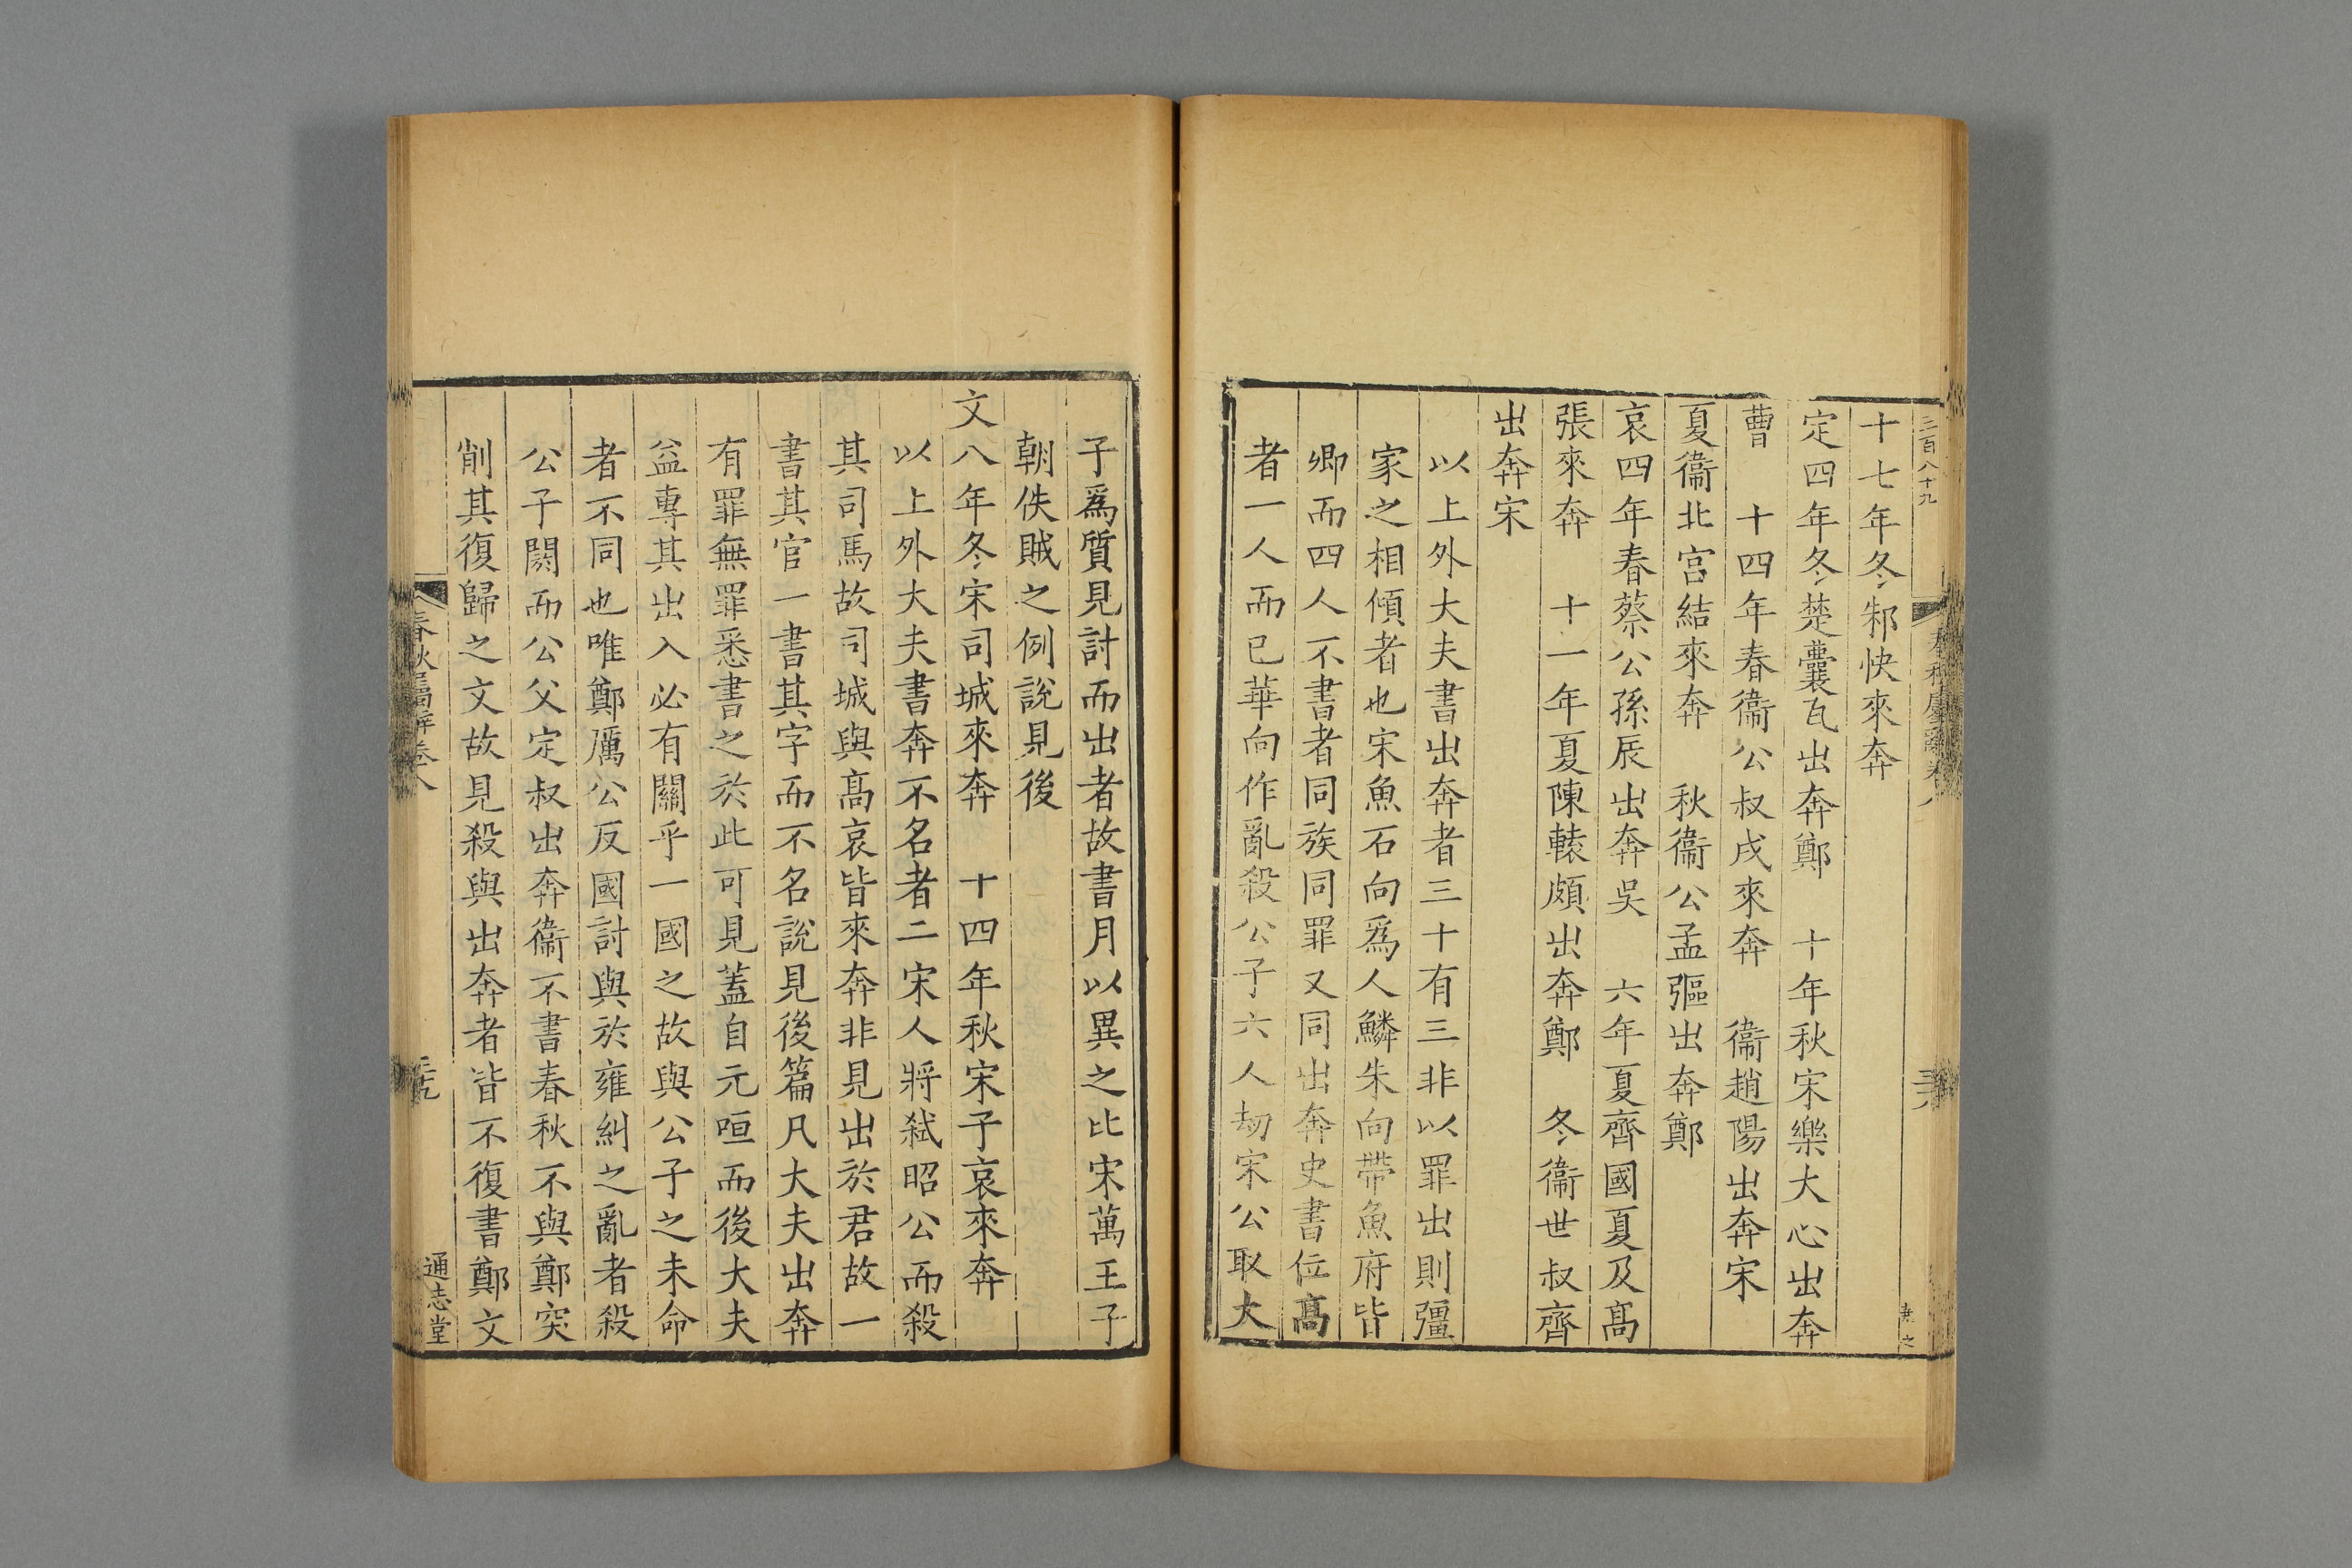 三百八十九
十七年冬邾快來奔
定四年冬楚囊瓦出奔鄭　十年秋宋樂大心出奔
曹　十四年春衞公叔戌來奔　衞趙陽出奔宋
夏衞北宮結來奔　秋衞公孟彄出奔鄭
哀四年春蔡公孫辰出奔吳　六年夏齊國夏及高
張來奔　十一年夏陳轅頗出奔鄭　冬衞世叔齊
出奔宋
以上外大夫書出奔者三十有三非以罪出則彊
家之相傾者也宋魚石向爲人鱗朱向帶魚府皆
卿而四人不書者同族同罪又同出奔史書位髙
者一人而已華向作亂殺公子六人劫宋公取大
子爲質見討而出者故書月以異之比宋萬王子
朝佚賊之例說見後
文八年冬宋司城來奔　十四年秋宋子哀來奔
以上外大夫書奔不名者二宋人將弑昭公而殺
其司馬故司城與髙哀皆來奔非見出於君故一
書其官一書其字而不名說見後篇凡大夫出奔
有罪無罪悉書之於此可見蓋自元咺而後大夫
益專其出入必有關乎一國之故與公子之未命
者不同也唯鄭厲公反國討與於雍糾之亂者殺
公子閼而公父定叔出奔衞不書春秋不與鄭突
削其復歸之文故見殺與出奔者皆不復書鄭文
春秋屬辭卷八
通志堂